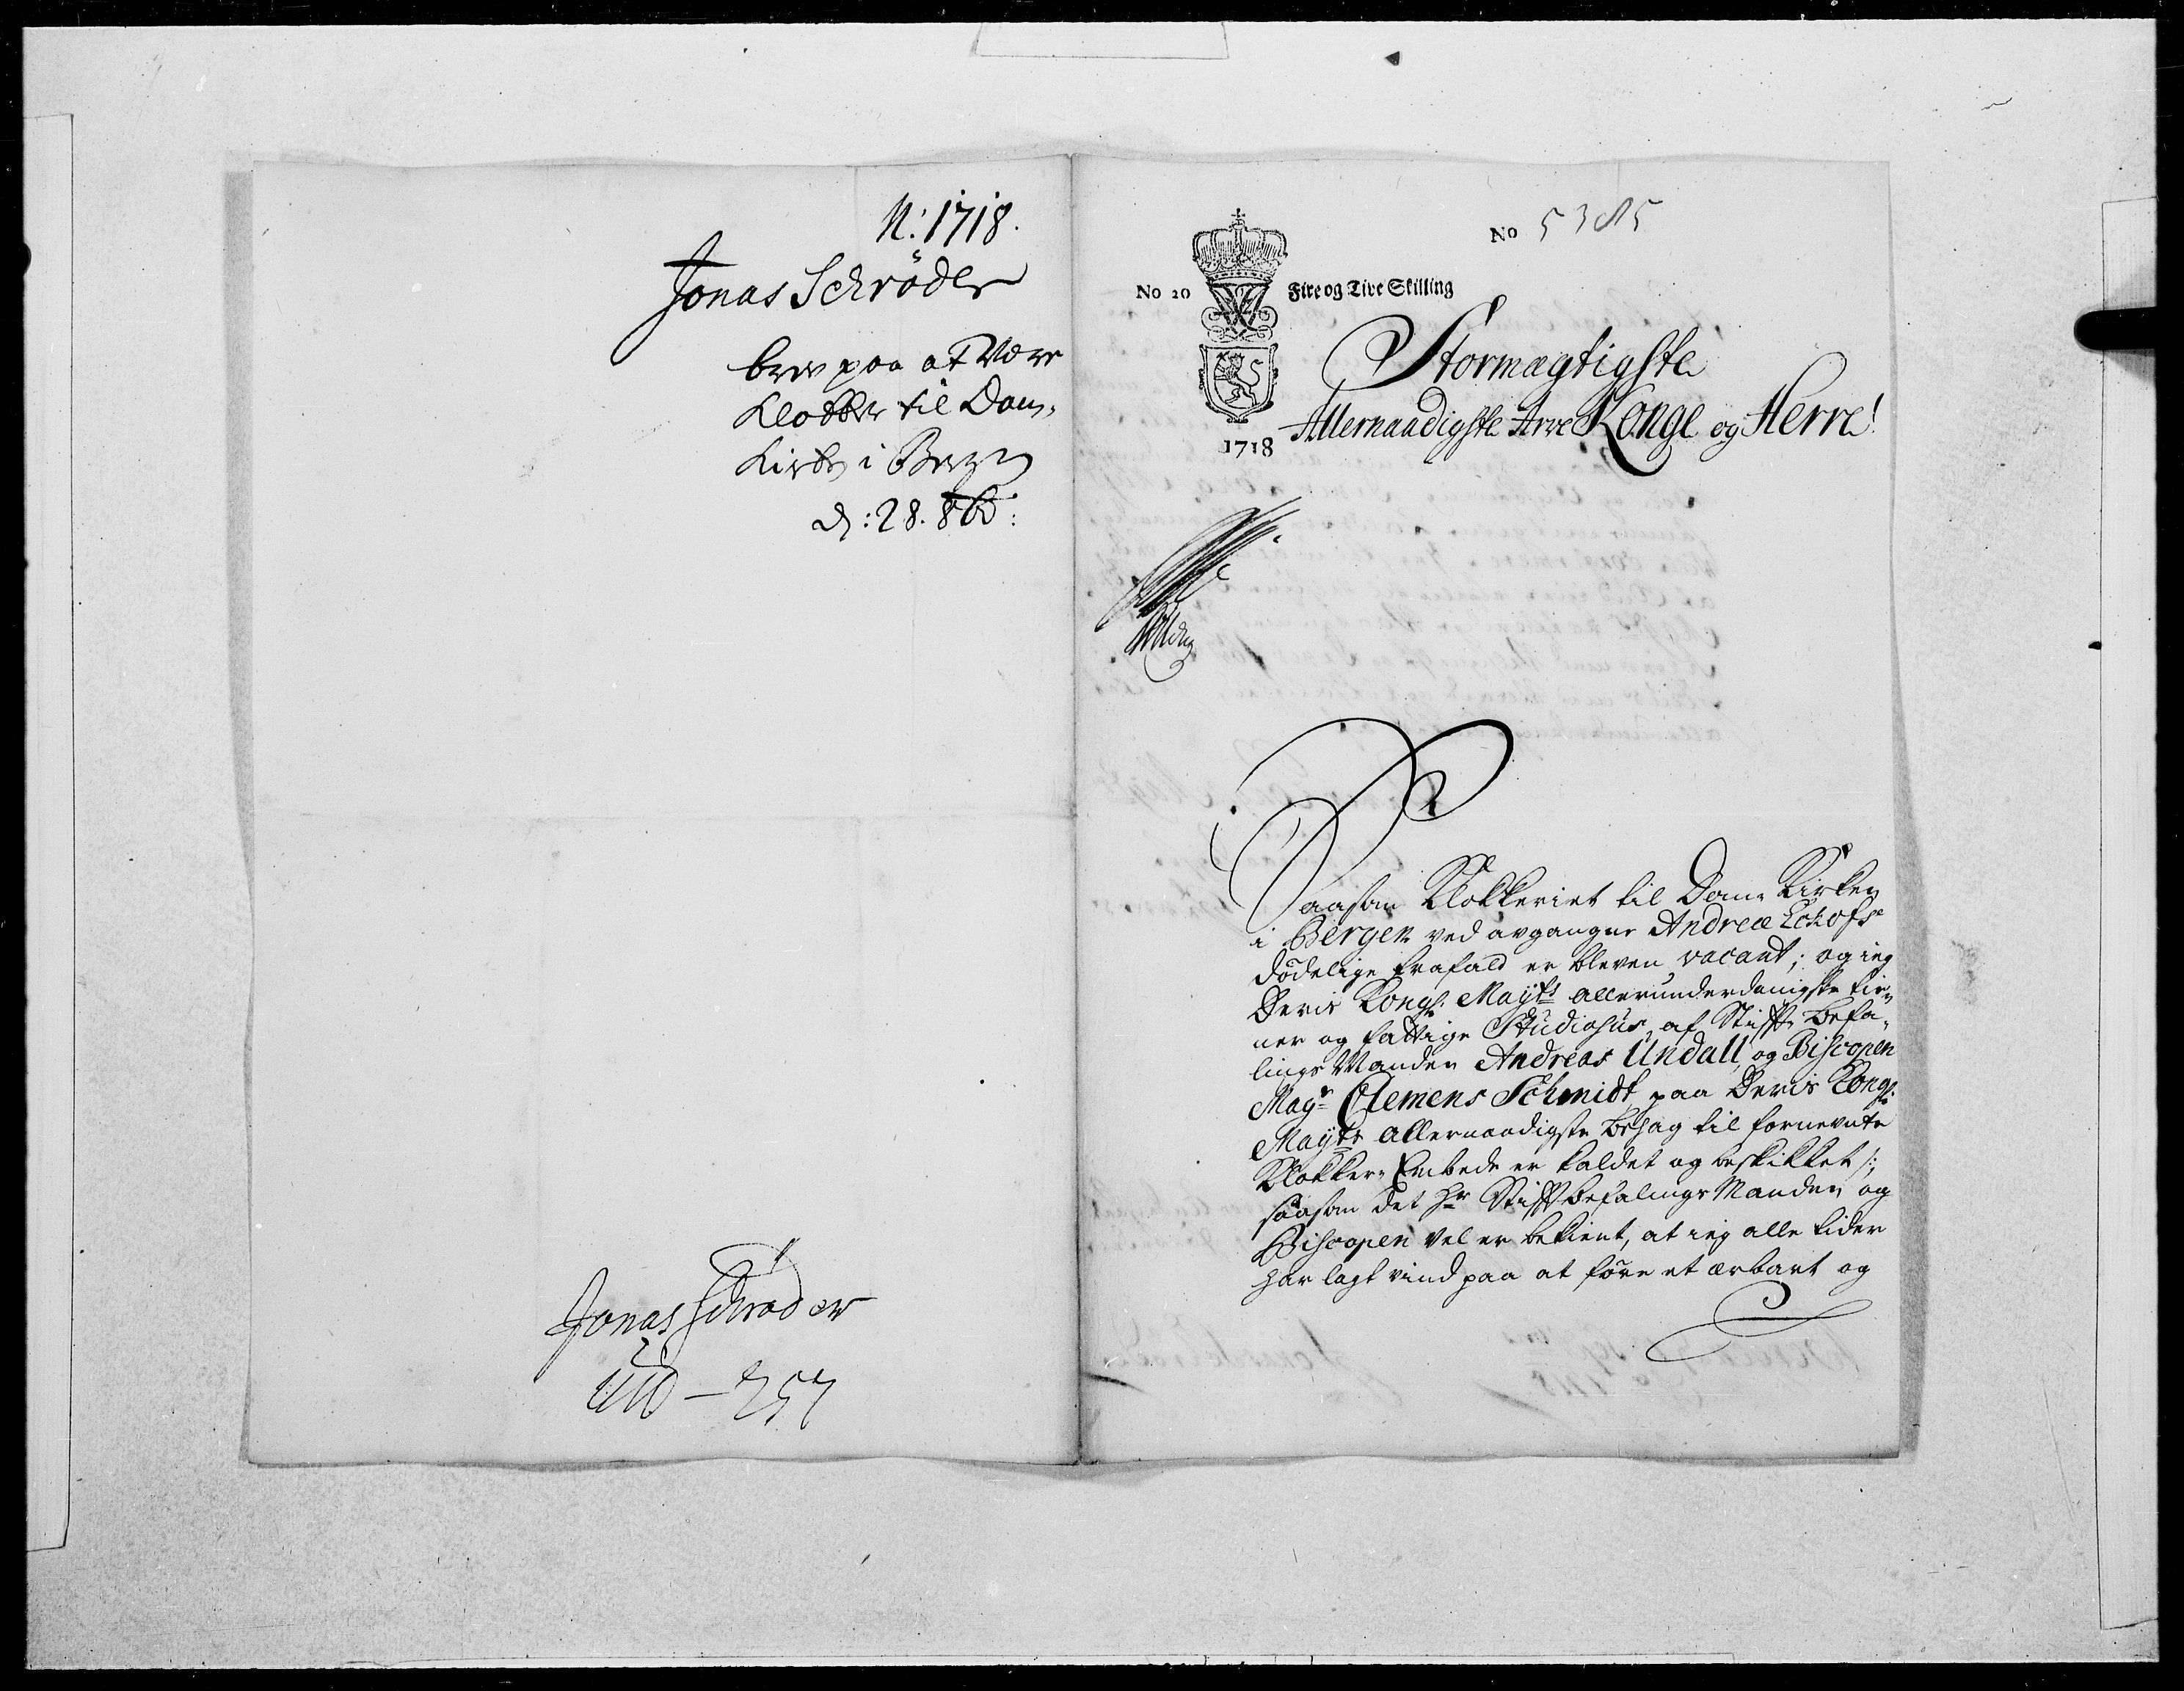 N: 1718.
Jonas Schröder
brev paa at Være
Klokker til Dom-
Kirken i Bergen
d: 28. 8b:
Jonas Schrøder
Und - 257
No 5385
No 20
Fire og Tive Skilling
1718
Stormægtigste
Allernaadigste Arve Konge og Herre!
Saasom Klokkeriet til Dom-Kirken
i Bergen ved avgangne Andreæ Eckofs
dødelige frafald er bleven vacant; og ieg
Deris Kongl: Mayts allerunderdanigste tie-
ner og fattige Studiosus af Stiffts befa-
lings Manden Andreas Undall og Biscopen
Magr Clemens Schmidt paa Deris Kongl:
Mayts Allernaadigste behag til fornevnte
Klokker-Embede er kaldet og beskikket /:,
saasom det Hr Stifftbefalings Manden og
Biscopen Vel er bekient, at ieg alle tider
har lagt vind paa at føre et ærbart og